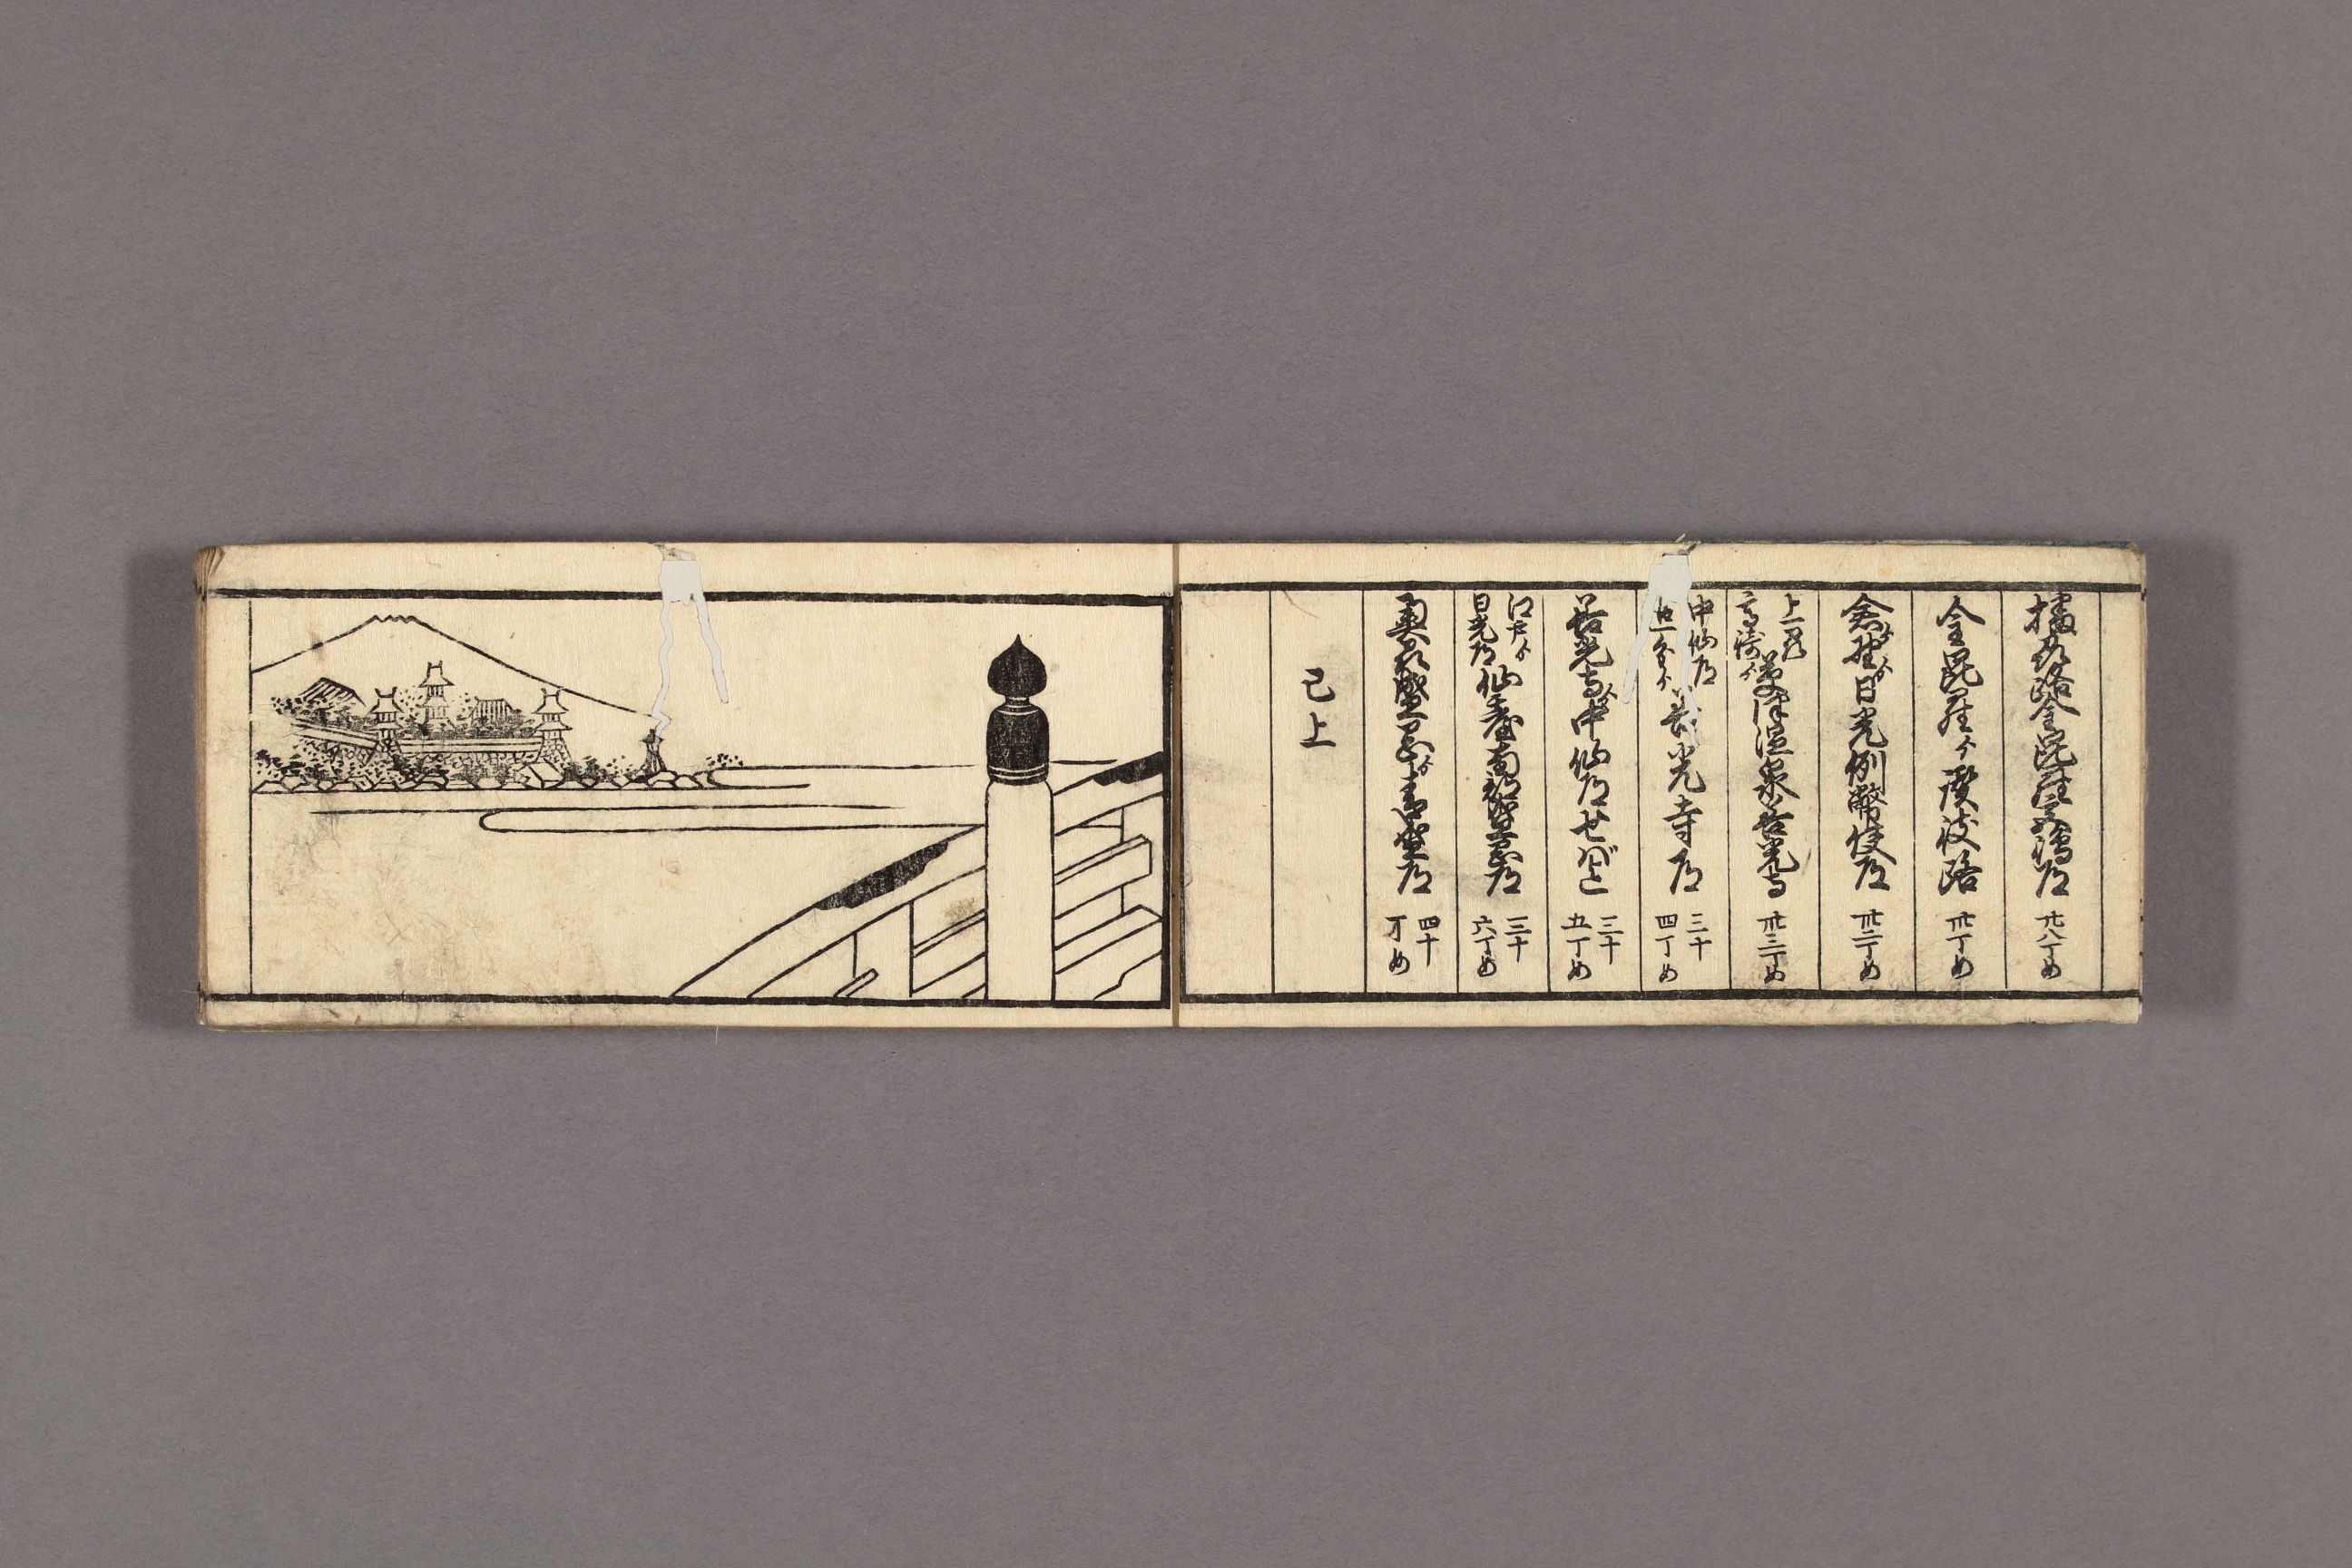 播州路金毘羅 道 廿八丁め
金毘羅ゟ 路 卅丁め
倉賀野ゟ日光例幣使道 卅二丁め
上州高崎ゟ草津温泉善光寺 卅三丁め
中仙道 ゟ善光寺道 三十四丁め
善光寺ゟ中仙道せばと 三十五丁め
江戸ゟ日光道仙臺南部盛岡道 三十六丁め
奥州盛岡ゟ 道 四十丁め
已上